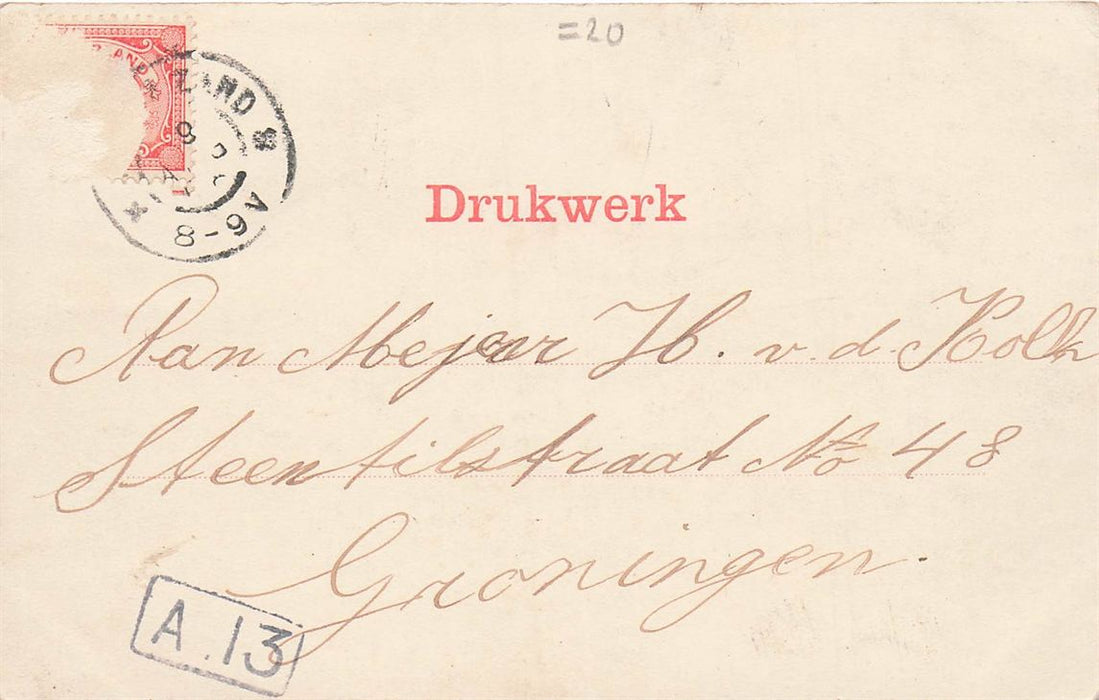 =20
ZAND
8-9V
Drukwerk
Aan Mejer H. v. d. Kolk
Steentilstraat No 48
Groningen.
A.13